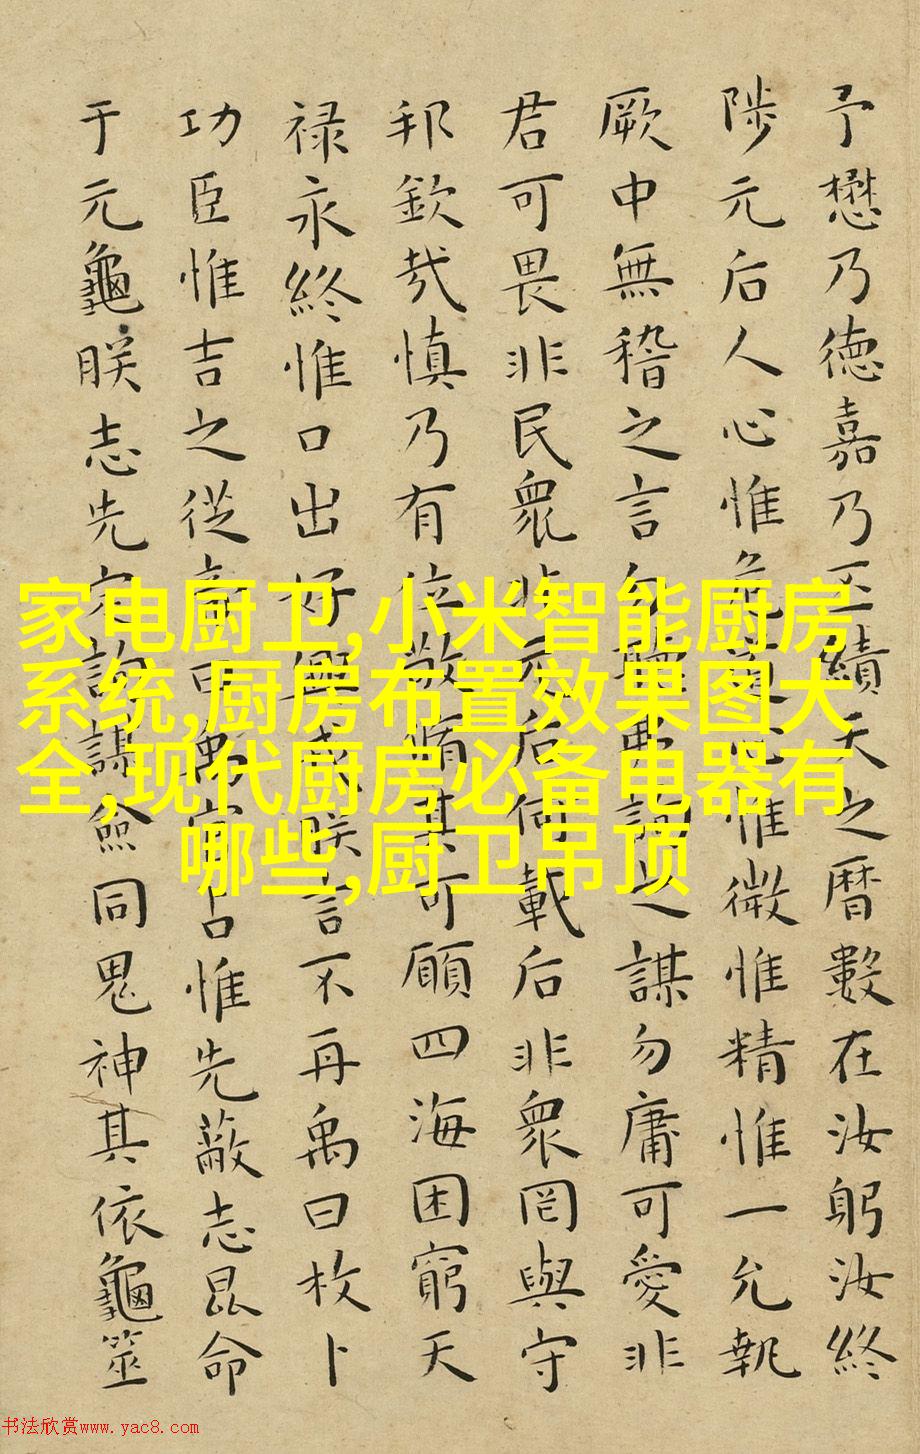 予懋乃德嘉乃丕績天之曆數在汝躬汝終
陟元后人心惟危道心惟微惟精惟一允執
厥中無稽之言勿聽弗詢之謀勿庸可愛非
君可畏非民衆非元后何載后非衆罔與守
邦欽哉慎乃有位敬脩其可願四海困窮天
禄永終惟口出好興戎朕言不再禹曰枚卜
功臣惟吉之從帝曰禹官占惟先蔽志昆命
于元龜朕志先定詢謀僉同鬼神其依龜筮
家电厨卫,小米智能厨房
系统,厨房布置效果图大
全,现代厨房必备电器有
哪些,厨卫吊顶
书法欣赏www.yac8.com